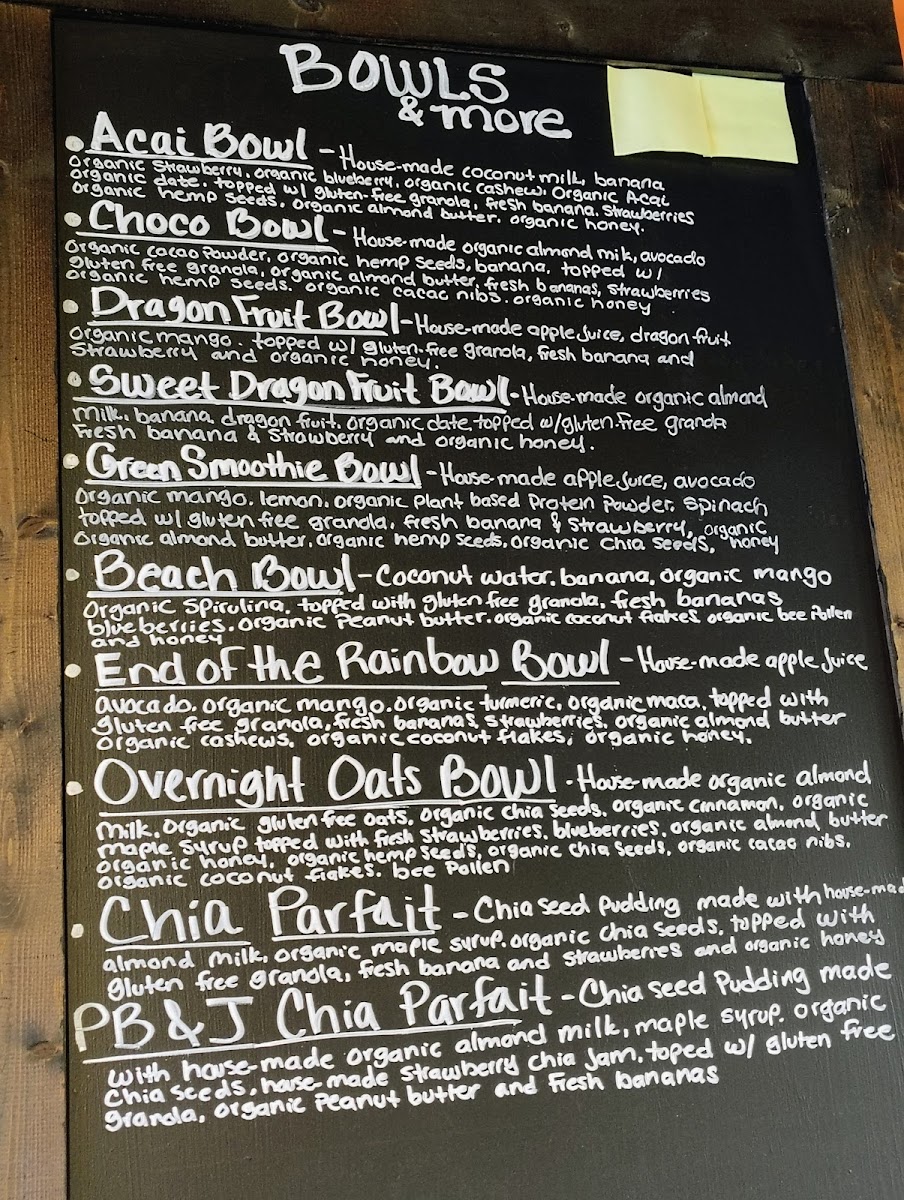 BOWLS
& more
• Acai Bowl - House-made coconut milk, banana
organic strawberry, organic blueberry, organic cashew. Organic Acai
organic date, topped w/ gluten-free granola, fresh banana, strawberries
organic hemp seeds, organic almond butter, organic honey.
• Choco Bowl - House-made organic almond milk, avocado
organic cacao powder, organic hemp seeds, banana, topped w/
gluten free granola, organic almond butter, fresh bananas, strawberries
organic hemp seeds. organic cacao nibs. organic honey
• Dragon Fruit Bowl - House-made apple juice, dragon fruit
organic mango. topped w/ gluten-free granola, fresh banana and
strawberry and organic honey.
• Sweet Dragon Fruit Bowl - House-made organic almond
milk, banana, dragon fruit, organic date, topped w/gluten-free granola
Fresh banana & strawberry and organic honey.
• Green Smoothie Bowl - House-made apple juice, avocado
organic mango, lemon, organic plant based Protein Powder, spinach
topped w/ gluten free granola, fresh banana & strawberry, organic
organic almond butter, organic hemp seeds, organic chia seeds, honey
• Beach Bowl - Coconut water, banana, organic mango
organic spirulina, topped with gluten free granola, fresh bananas
blueberries, organic peanut butter, organic coconut flakes, organic bee pollen
and honey
• End of the Rainbow Bowl - House-made apple juice
avocado, organic mango, organic turmeric, organic maca, topped with
gluten free granola, fresh bananas, strawberries, organic almond butter
organic cashews, organic coconut flakes, organic honey.
• Overnight Oats Bowl - House-made organic almond
milk, organic gluten free oats, organic chia seeds, organic cinnamon, organic
maple syrup topped with fresh strawberries, blueberries, organic almond butter
organic honey, organic hemp seeds, organic chia seeds, organic cacao nibs,
organic coconut flakes. bee Pollen
• Chia Parfait - Chia seed Pudding made with house-mad
almond milk, organic maple syrup, organic chia seeds, topped with
gluten free granola, fresh banana and strawberries and organic honey
PB & J Chia Parfait - Chia seed Pudding made
with house-made organic almond milk, maple syrup, organic
chia seeds, house-made strawberry chia jam, toped w/ gluten free
granola, organic Peanut butter and fresh bananas